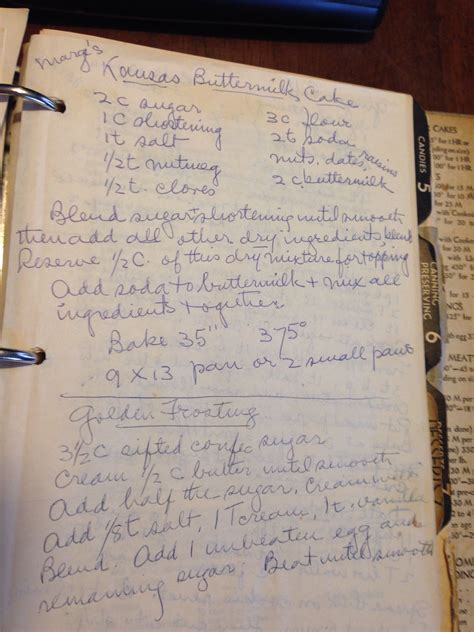 Marg's
Kansas Buttermilk Cake
2 C sugar
1 C shortening
1t salt
1/2t nutmeg
1/2t. cloves
3C flour
2t soda
nuts, dates, raisins
2 C. buttermilk
Blend sugar + shortening until smooth
then add all other dry ingredients, blend
Reserve 1/2 C. of this dry mixture for topping
Add soda to buttermilk + mix all
ingredients together
Bake 35" 375°
9 X 13 pan or 2 small pans
Golden Frosting
3 1/2 C sifted confec sugar
Cream 1/2 C butter until smooth
Add half the sugar, cream well
Add 1/8t salt, 1 T cream, 1t. vanilla
Blend. Add 1 unbeaten egg and
remaining sugar. Beat until smooth
CANDIES 5
CANNING
PRESERVING 6
7
CAKES
MEAT